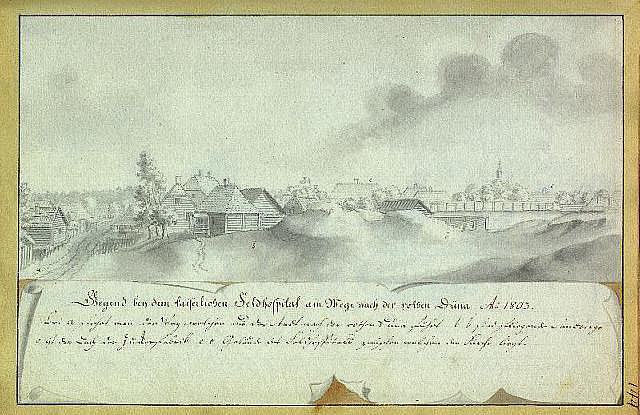 Gegend bey dem kaiserlichen Feldhospital am Wege nach der rothen Düna. Ao 1803.
Bei a sieht man den Weg welchen aus der Stadt nach der rothen Düna führt. b. b.
c ist das der Zuckerfabrik. e. e. Gebäude des Feldhospitals zwischen welchen die Kirche liegt.
144